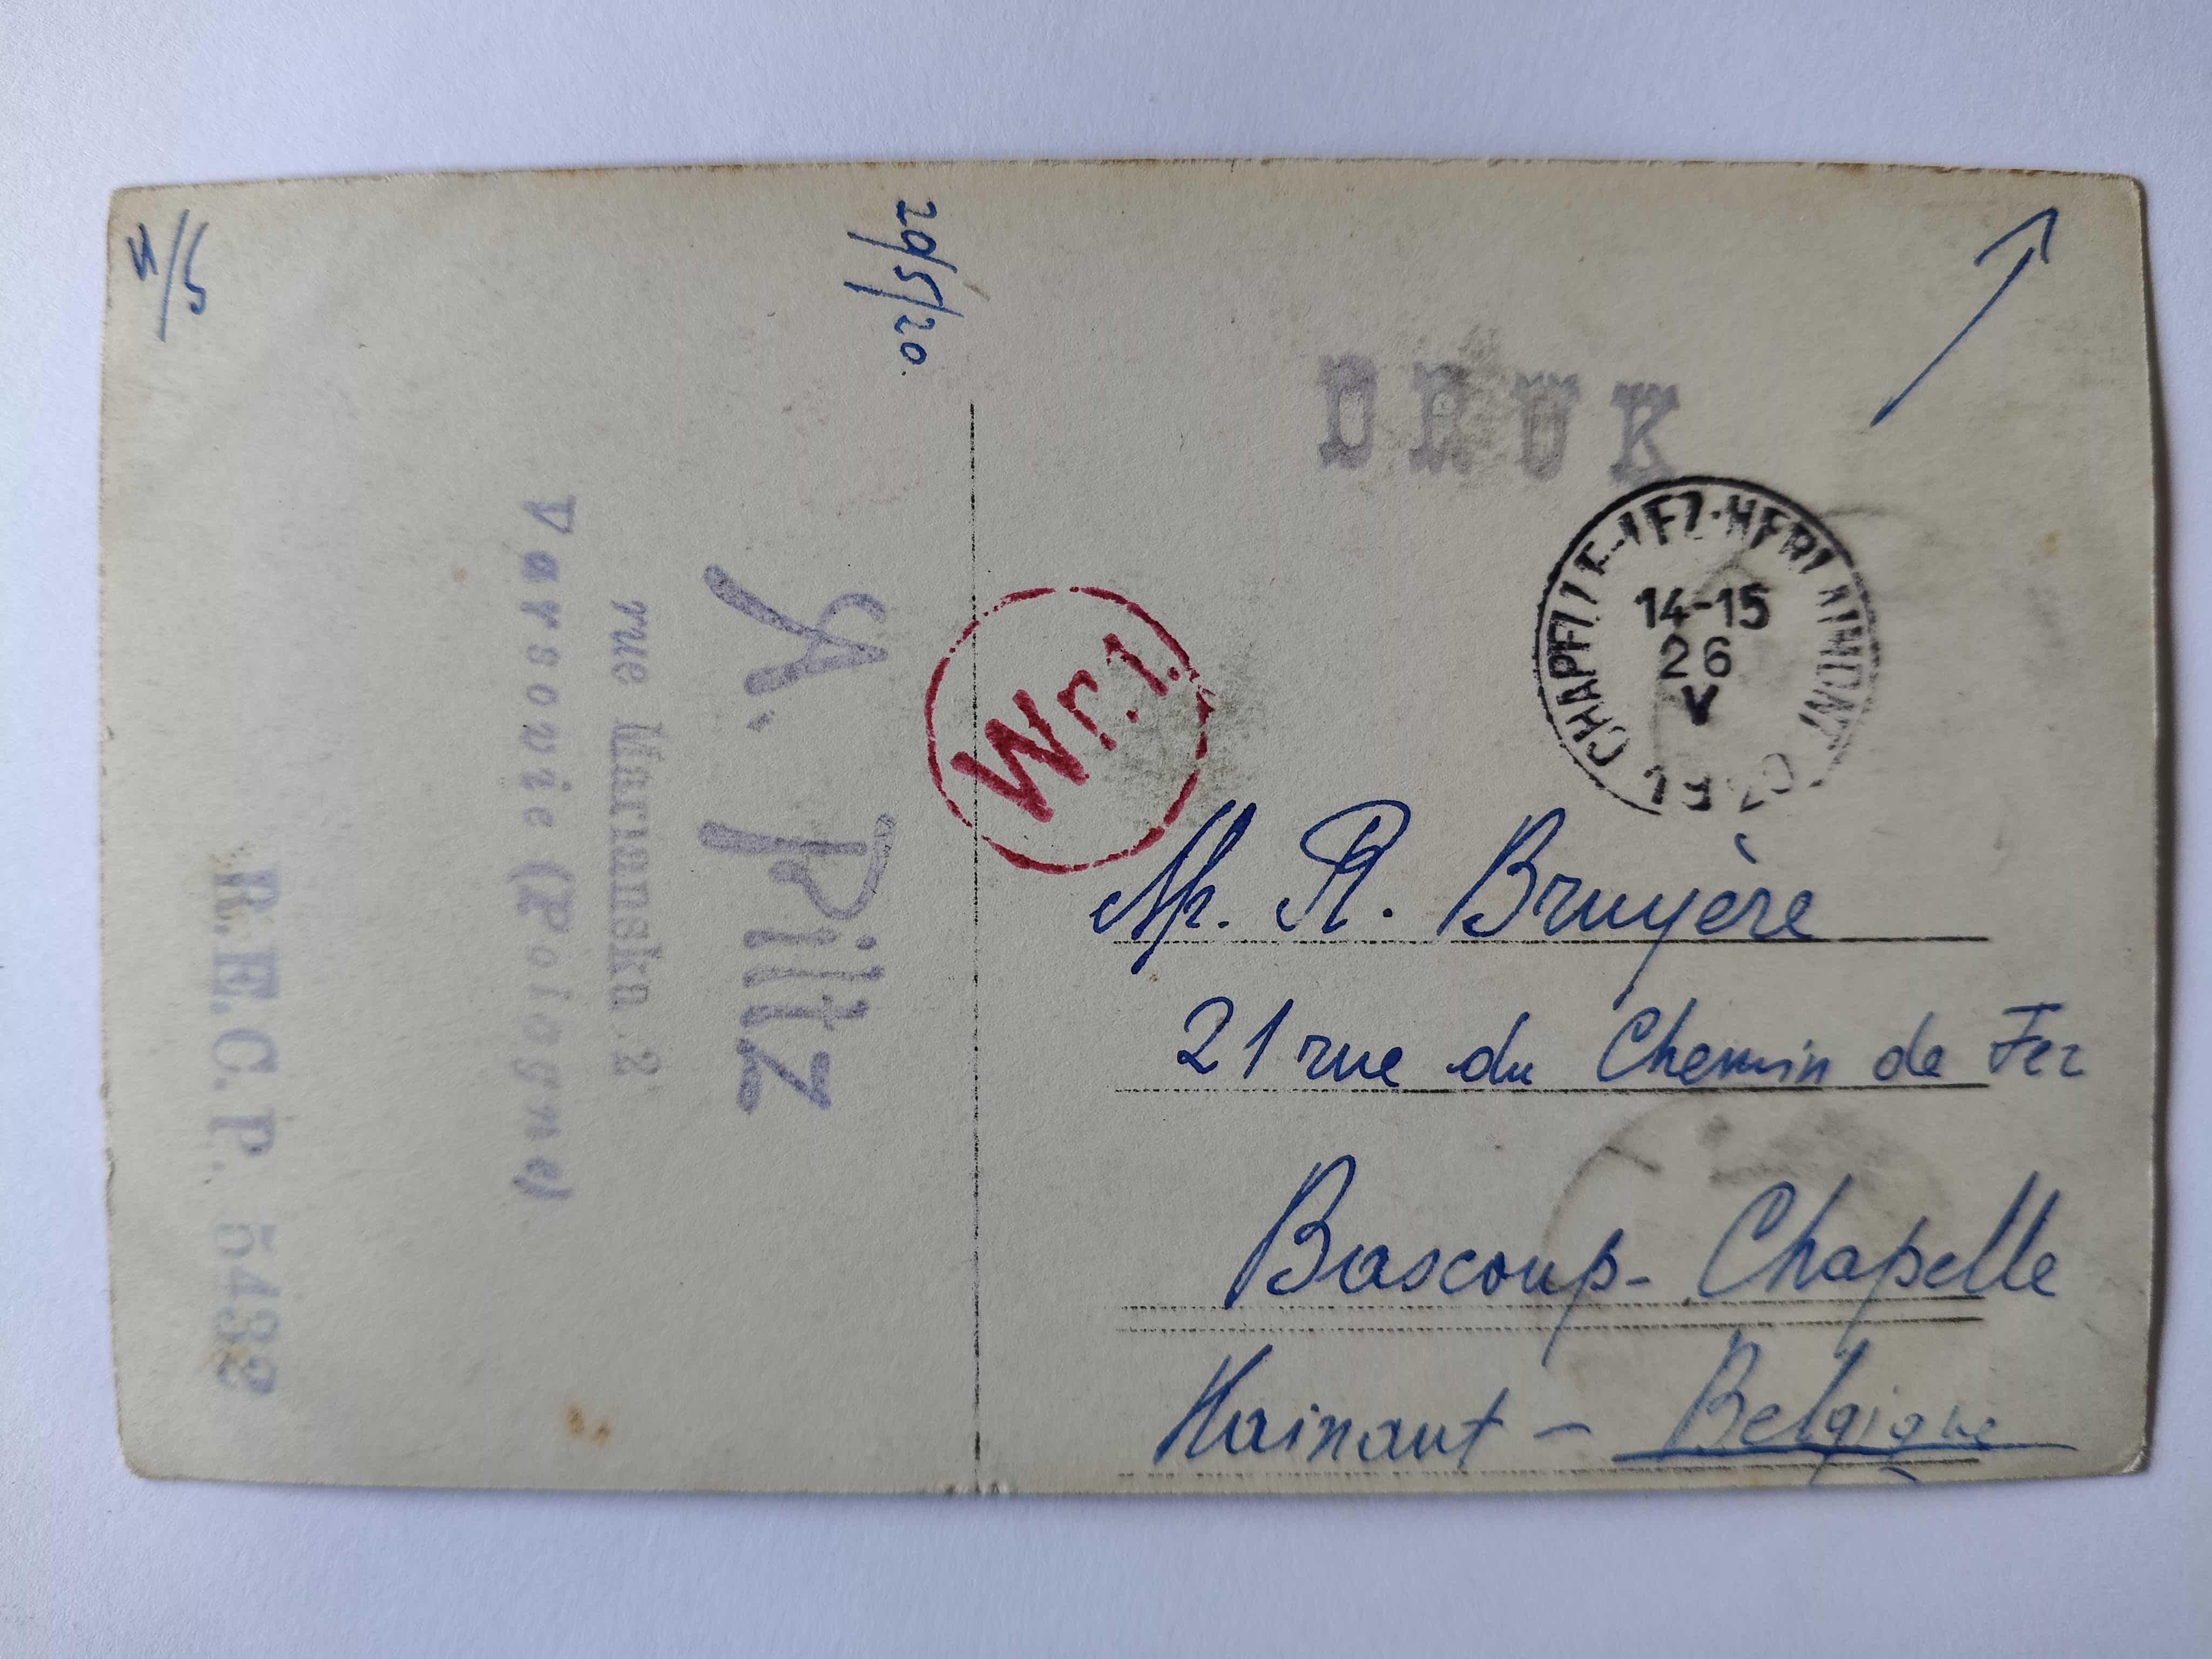 4/5
29/5/20.
A. Piltz
rue Marianska 2
Varsovie (Pologne)
R.E.C.P. 5432
DRUK
Wr.1.
CHAPELLE-LEZ-HERLAIMONT
14-15
26
V
1920
Mr. R. Bruyère
21 rue du Chemin de Fer
Bascoup - Chapelle
Hainant - Belgique